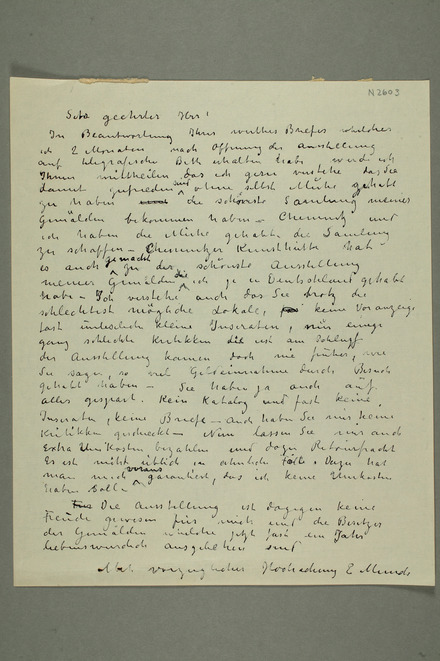 N 2603
Sehr geehrter Herr!
In Beantwortung Ihres werthes Briefes welches
ich 2 Monaten nach Öffnung der ausstellung
auf telegrafische Bitt erhalten habe werde ich
Ihnen mittheilen das ich gern verstehe das Sie
damit zufrieden sind ohne selbst Mühe gehabt
zu haben die schönste Samlung meines
Gemälden bekommen haben – Chemnitz und
ich haben die Mühe gehabt die Samlung
zu schaffen – Chemnitzer Kunsthütte hat
es auch gemacht zu der schönste Ausstellung
meiner Gemälden die ich je in Deutschland gehabt
habe – Ich verstehe auch das Sie trotz die
schlechtest mögliche Lokale, keine Voranzeige
fast undeutlich kleine Inseraten, nur einige
ganz schlechte Kritikken die erst am Schluss
der Ausstellung kamen doch nie früher, wie
Sie sagen, so viel Geldeinnahme durch Besuch
gehabt haben – Sie haben ja auch auf
alles gespart. Kein Katalog und fast keine
Inseraten, keine Briefe – auch haben Sie mir keine
Kritikken geschickt – Nun lassen Sie mir auch
Extra Unkosten bezahlen und dazu Retourfracht
Es ist nicht üblich in Fälle. Dazu hat
man mich voraus garantiert, das ich keine Unkosten
haben soll –
Die Ausstellung ist dagegen keine
Freude gewesen für mich und die Besitzer
der Gemälden welche jetzt fast ein Jahr
liebenswürdich ausgeliehen sind
Mit vorzüglicher Hochachtung E Munch